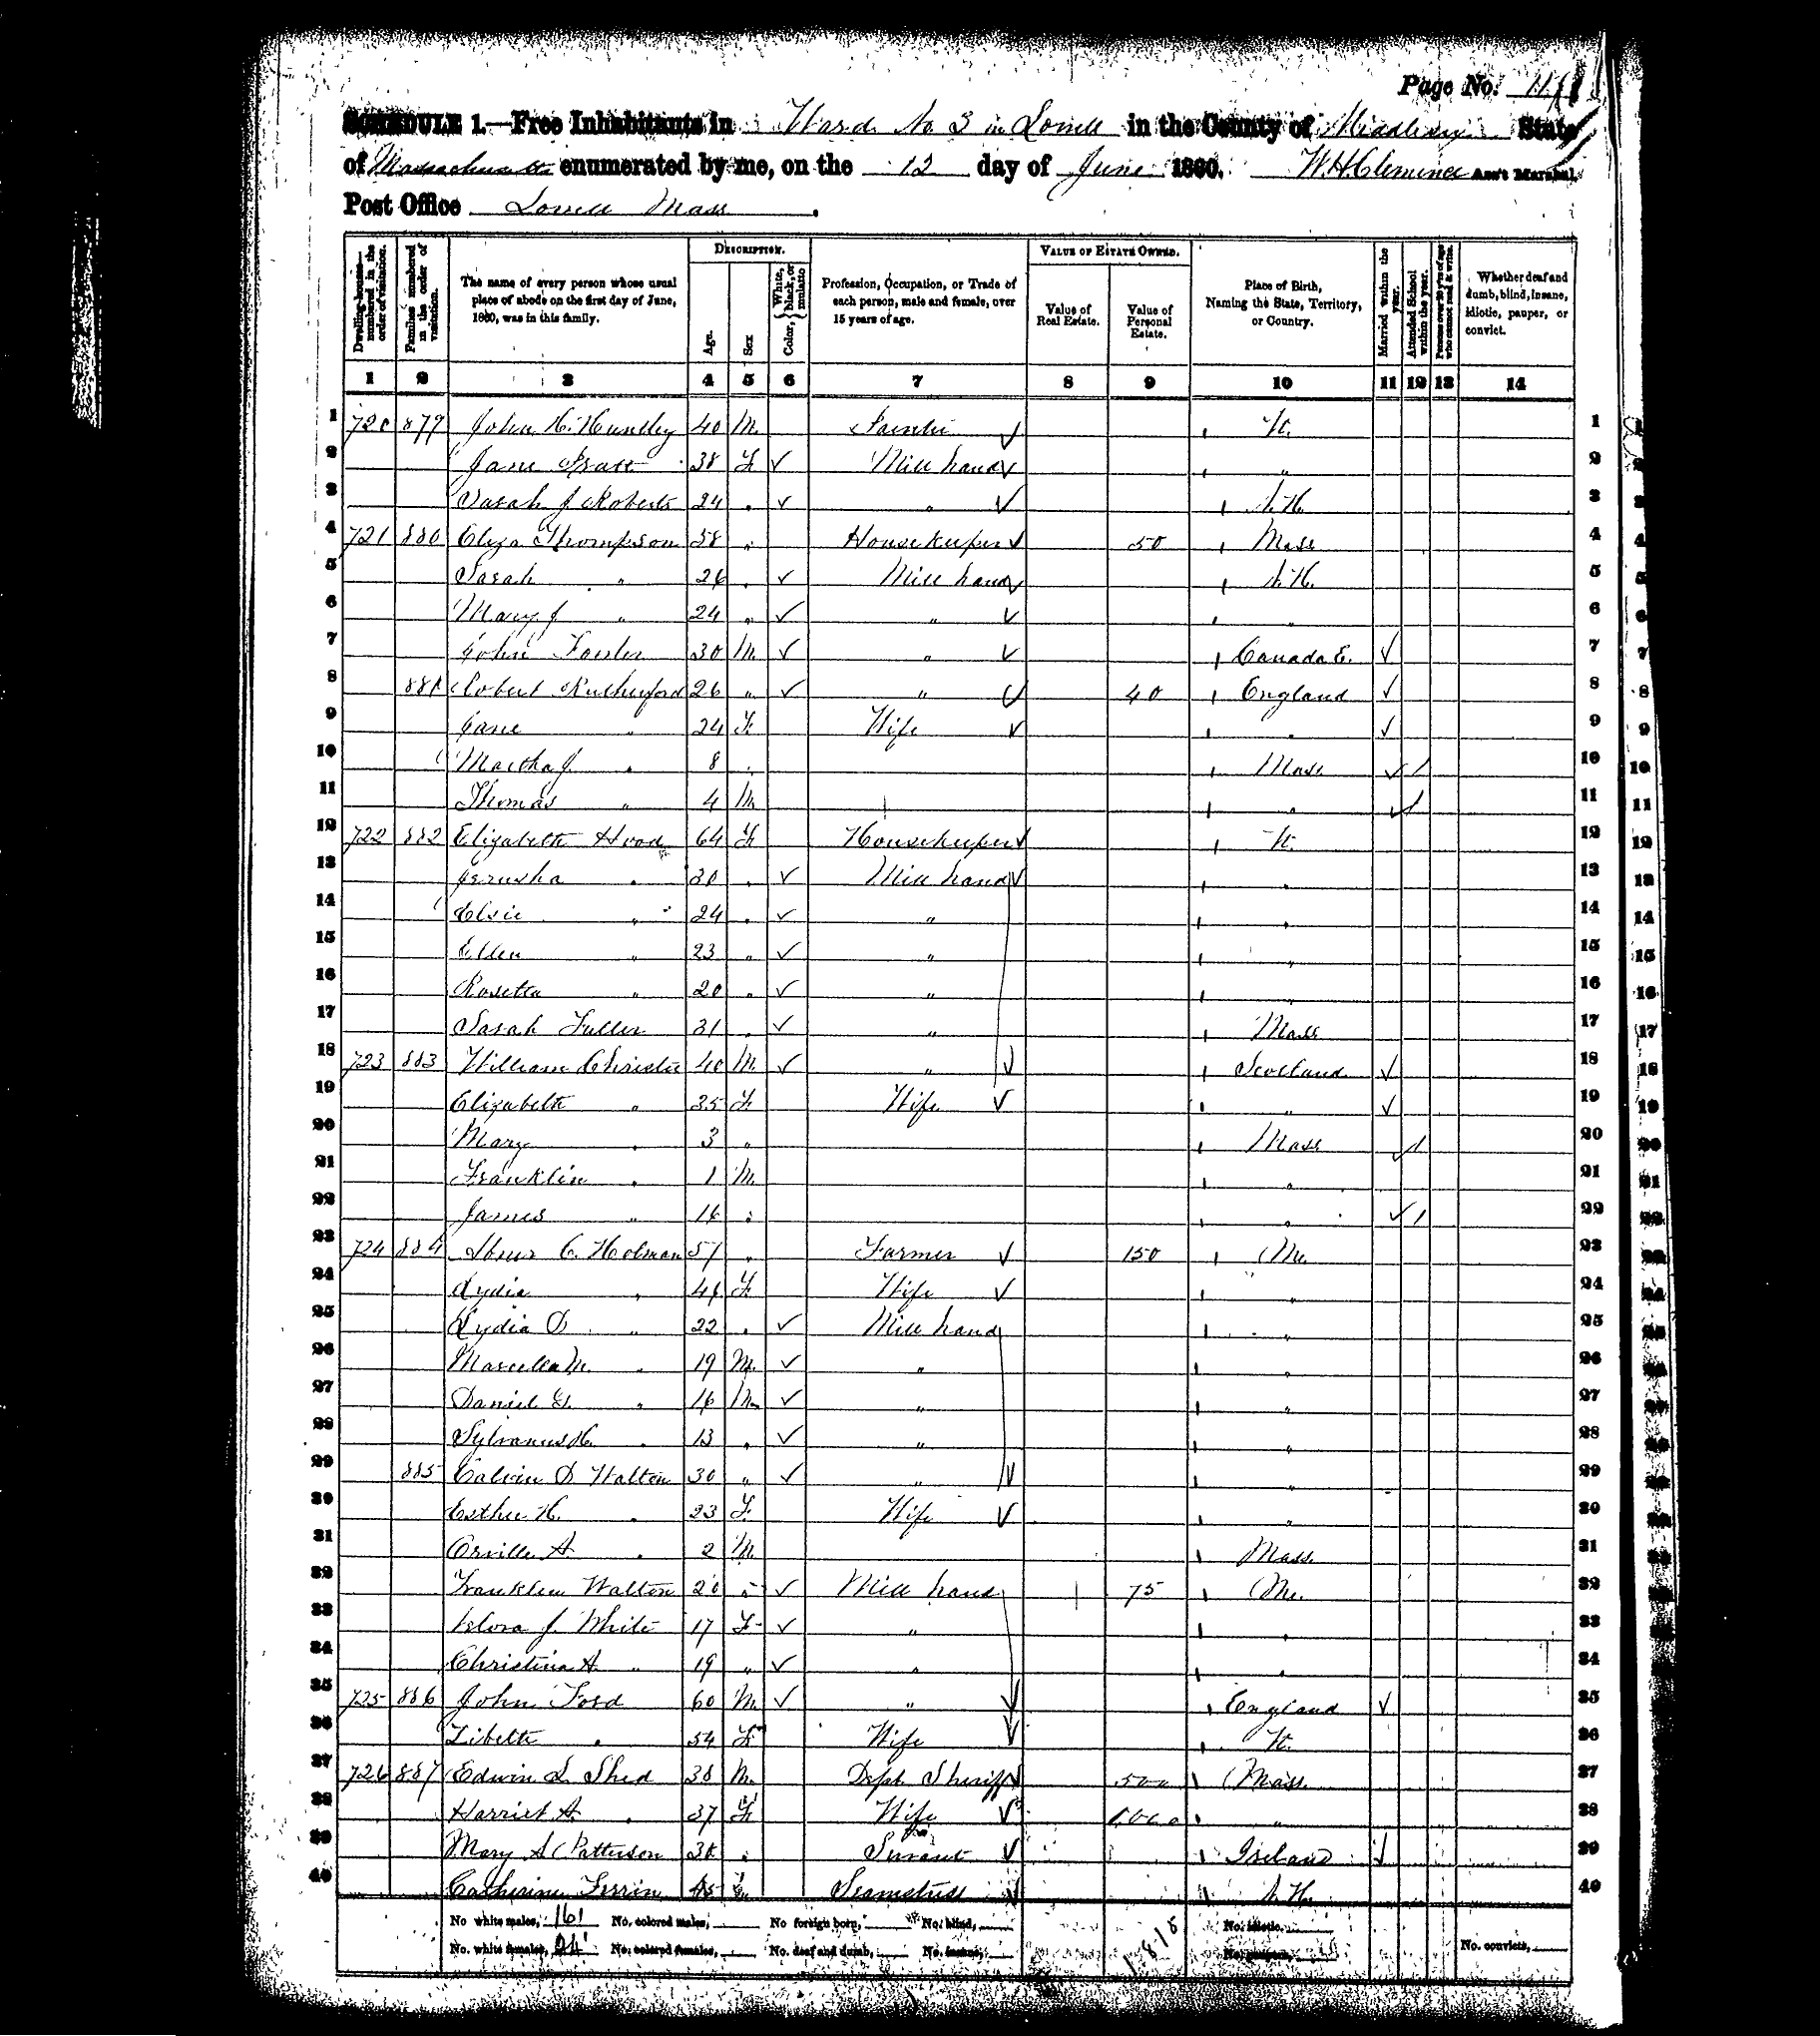 Page No. 111
SCHEDULE 1.—Free Inhabitants in Ward No 3 in Lowell in the County of Middlesex State
of Massachusetts enumerated by me, on the 12 day of June 1860. W. H. Clemence Ass't Marshal.
Post Office Lowell Mass.
DESCRIPTION. VALUE OF ESTATE OWNED.
Dwelling-houses—numbered in the order of visitation. Families numbered in the order of visitation. The name of every person whose usual place of abode on the first day of June, 1860, was in this family. Age. Sex Color, White, black, or mulatto Profession, Occupation, or Trade of each person, male and female, over 15 years of age. Value of Real Estate. Value of Personal Estate. Place of Birth, Naming the State, Territory, or Country. Married within the year. Attended School within the year. Persons over 20 y'rs of age who cannot read & write. Whether deaf and dumb, blind, insane, idiotic, pauper, or convict.
1 2 3 4 5 6 7 8 9 10 11 12 13 14
1 720 879 John H. Huntley 40 M. Painter ✓ Vt. 1
2 Jane 38 F ✓ Mill hand ✓ " 2
3 Sarah J Roberts 24 " ✓ " ✓ N.H. 3
4 721 880 Eliza Thompson 58 " Housekeeper ✓ 50 Mass 4
5 Sarah " 26 " ✓ Mill hand ✓ N.H. 5
6 Mary J " 24 " ✓ " ✓ " 6
7 John 30 M. ✓ " ✓ Canada E. ✓ 7
8 881 Robert Rutherford 26 " ✓ " ✓ 40 England ✓ 8
9 Jane " 24 F. Wife ✓ " ✓ 9
10 Martha J. " 8 " Mass ✓ / 10
11 Thomas " 4 M " ✓ / 11
12 722 882 Elizabeth Hood 64 F Housekeeper ✓ Vt. 12
13 Jerusha " 30 " ✓ Mill hand ✓ " 13
14 Elsie " 24 " ✓ " " 14
15 Ellen " 23 " ✓ " " 15
16 Rosetta " 20 " ✓ " " 16
17 Sarah Fuller 31 " ✓ " Mass 17
18 723 883 William Christie 40 M. ✓ " ✓ Scotland ✓ 18
19 Elizabeth " 35 F Wife ✓ " ✓ 19
20 Mary " 3 " Mass ✓ / 20
21 Franklin " 1 M. " 21
22 James " 16 " " ✓ / 22
23 724 884 C. Holman 51 " Farmer ✓ 150 Me. 23
24 Lydia " 41 F Wife ✓ " 24
25 Lydia D. " 22 " ✓ Mill hand " 25
26 Marcella M. " 19 M. ✓ " " 26
27 Daniel G. " 16 M. ✓ " " 27
28 Sylvanus H. " 13 " ✓ " " 28
29 885 Calvin D Walton 30 " ✓ " ✓ " 29
30 Esther H. " 23 F. Wife ✓ " 30
31 Orville A. " 2 M. Mass. 31
32 Franklin Walton 20 " ✓ Mill hand 75 Me. 32
33 J. White 17 F ✓ " " 33
34 Christina A. " 19 " ✓ " " 34
35 725 886 John Ford 60 M. ✓ " ✓ England ✓ 35
36 Tibeth " 54 F Wife ✓ Vt. 36
37 726 887 Edwin L. Shed 38 M. Dept. Sheriff ✓ 500 Mass. 37
38 Harriet A. " 37 F Wife ✓ 1,000 " 38
39 Mary A Patterson 38 " Servant ✓ Ireland ✓ 39
40 Catherine Ferrin 45 Seamstress ✓ N.H. 40
No white males, 16 No. colored males, No foreign born, No. blind, No. idiotic.
No. white females, 24 No. colored females, No. deaf and dumb, No. insane, 1815 No. paupers, No. convicts,